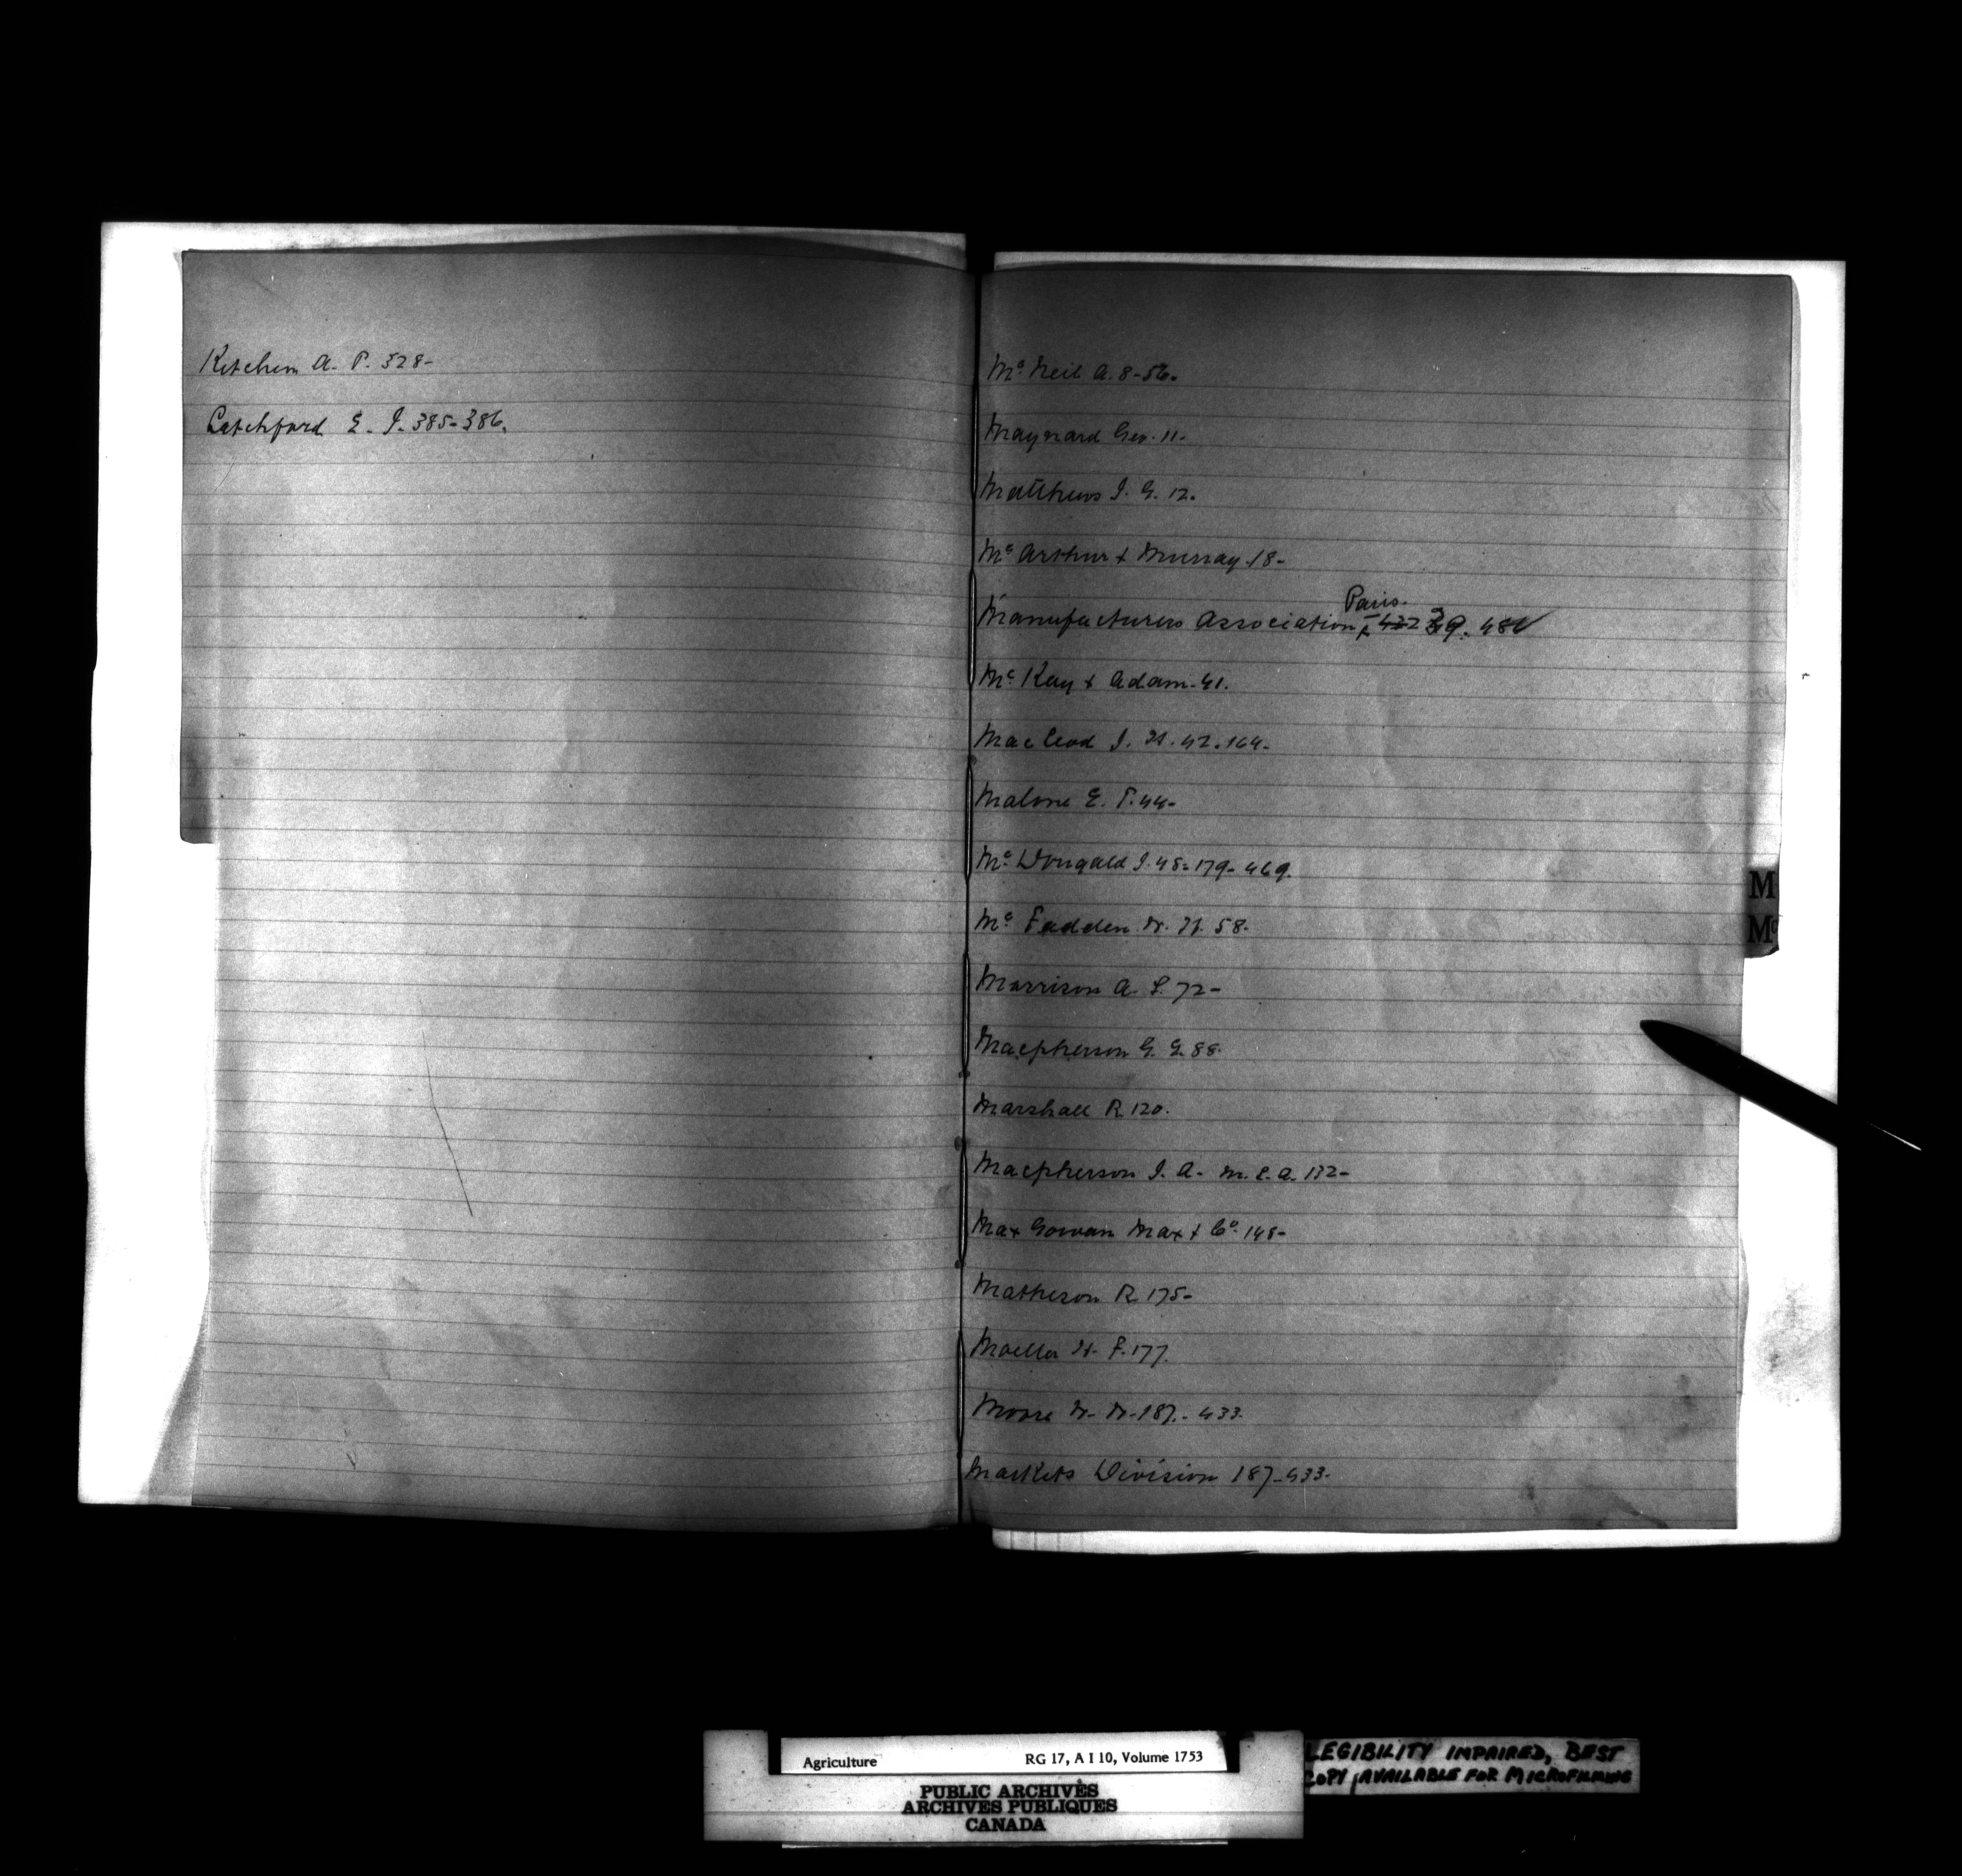 Ketchem A. P. 328-
Latchford E. J. 385-386.
Mc Neil A. 8-56.
Maynard Geo. 11-
Matthews J. G. 12.
Mc Arthur & Murray 18-
Paris.
Manufacturers Association 39.
Mc Kay & Adam-41.
Mac Leod J. H. 42. 164-
Malone E. T. 44-
Mc Dougald J. 48-179-469.
Mc Fadden W. H. 58-
Morrison A. L. 72-
Macpherson G. G. 88-
Marshall R 120.
Macpherson J. A. M. L. A. 132-
Max Gowan Max & Co. 148-
Matheson R. 175-
Moeller H. F. 177.
Moore W. W. 187.-433-
Markets Division 187-433-
M
Mc
Agriculture RG 17, A I 10, Volume 1753
PUBLIC ARCHIVES
ARCHIVES PUBLIQUES
CANADA
LEGIBILITY IMPAIRED, BEST
COPY AVAILABLE FOR MICROFILMING